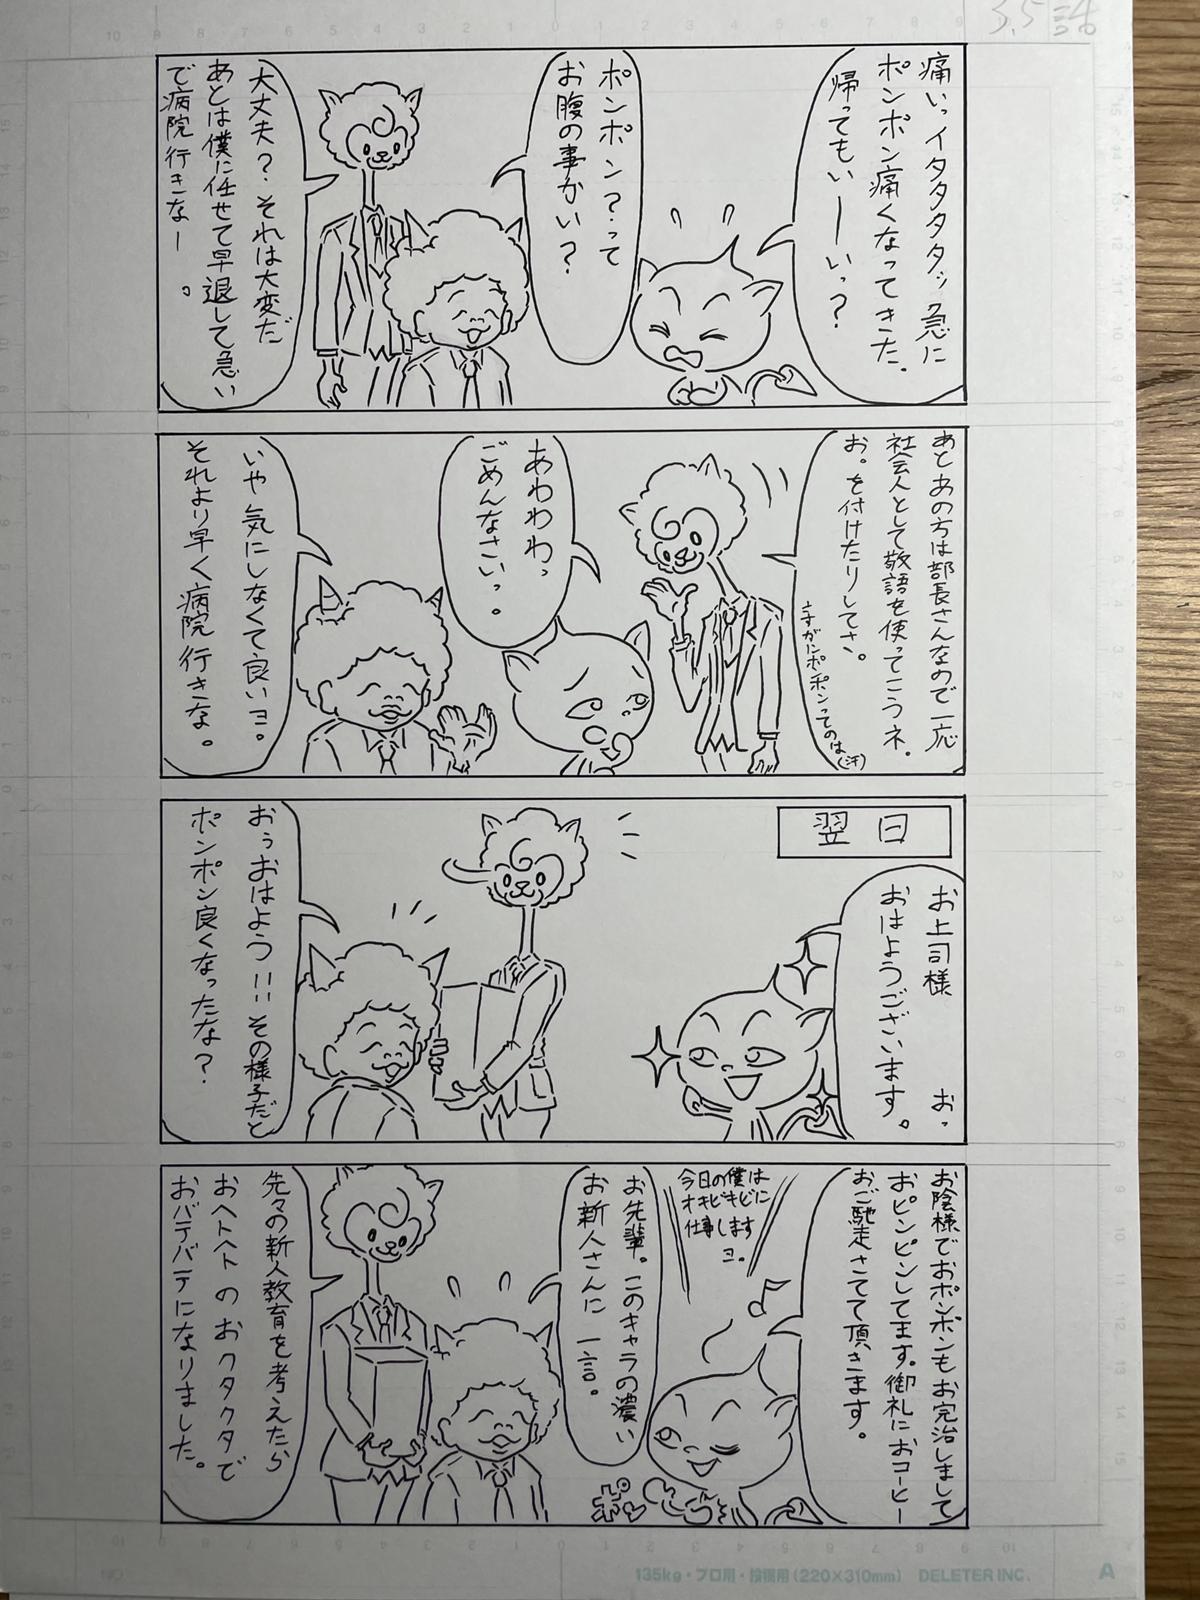 3.5話
痛いっイタタタタッ急に
ポンポン痛くなってきた.
帰ってもいーいっ?
ポンポン?って
お腹の事かい?
大丈夫?それは大変だ
あとは僕に任せて早退して急い
で病院行きなー。
あとあの方は部長さんなので一応
社会人として敬語を使ってこうネ.
お。を付けたりしてさ。
さすがにポンポンってのは(汗)
あわわわっ
ごめんなさいっ。
いや気にしなくて良いヨ。
それより早く病院行きな。
翌日
お上司様 おっ
おはようございます。
おぅおはよう!!その様子だと
ポンポン良くなったな?
お陰様でおポンポンもお完治しまして
おピンピンしてます。御礼におコーヒー
おご馳走さてて頂きます。
今日の僕は
オキビキビに
仕事します
ヨ。
お先輩。このキャラの濃い
お新人さんに一言。
先々の新人教育を考えたら
おヘトヘトのおクタクタで
おバテバテになりました。
ポン
135kg・プロ用・投稿用(220×310mm) DELETER INC. A